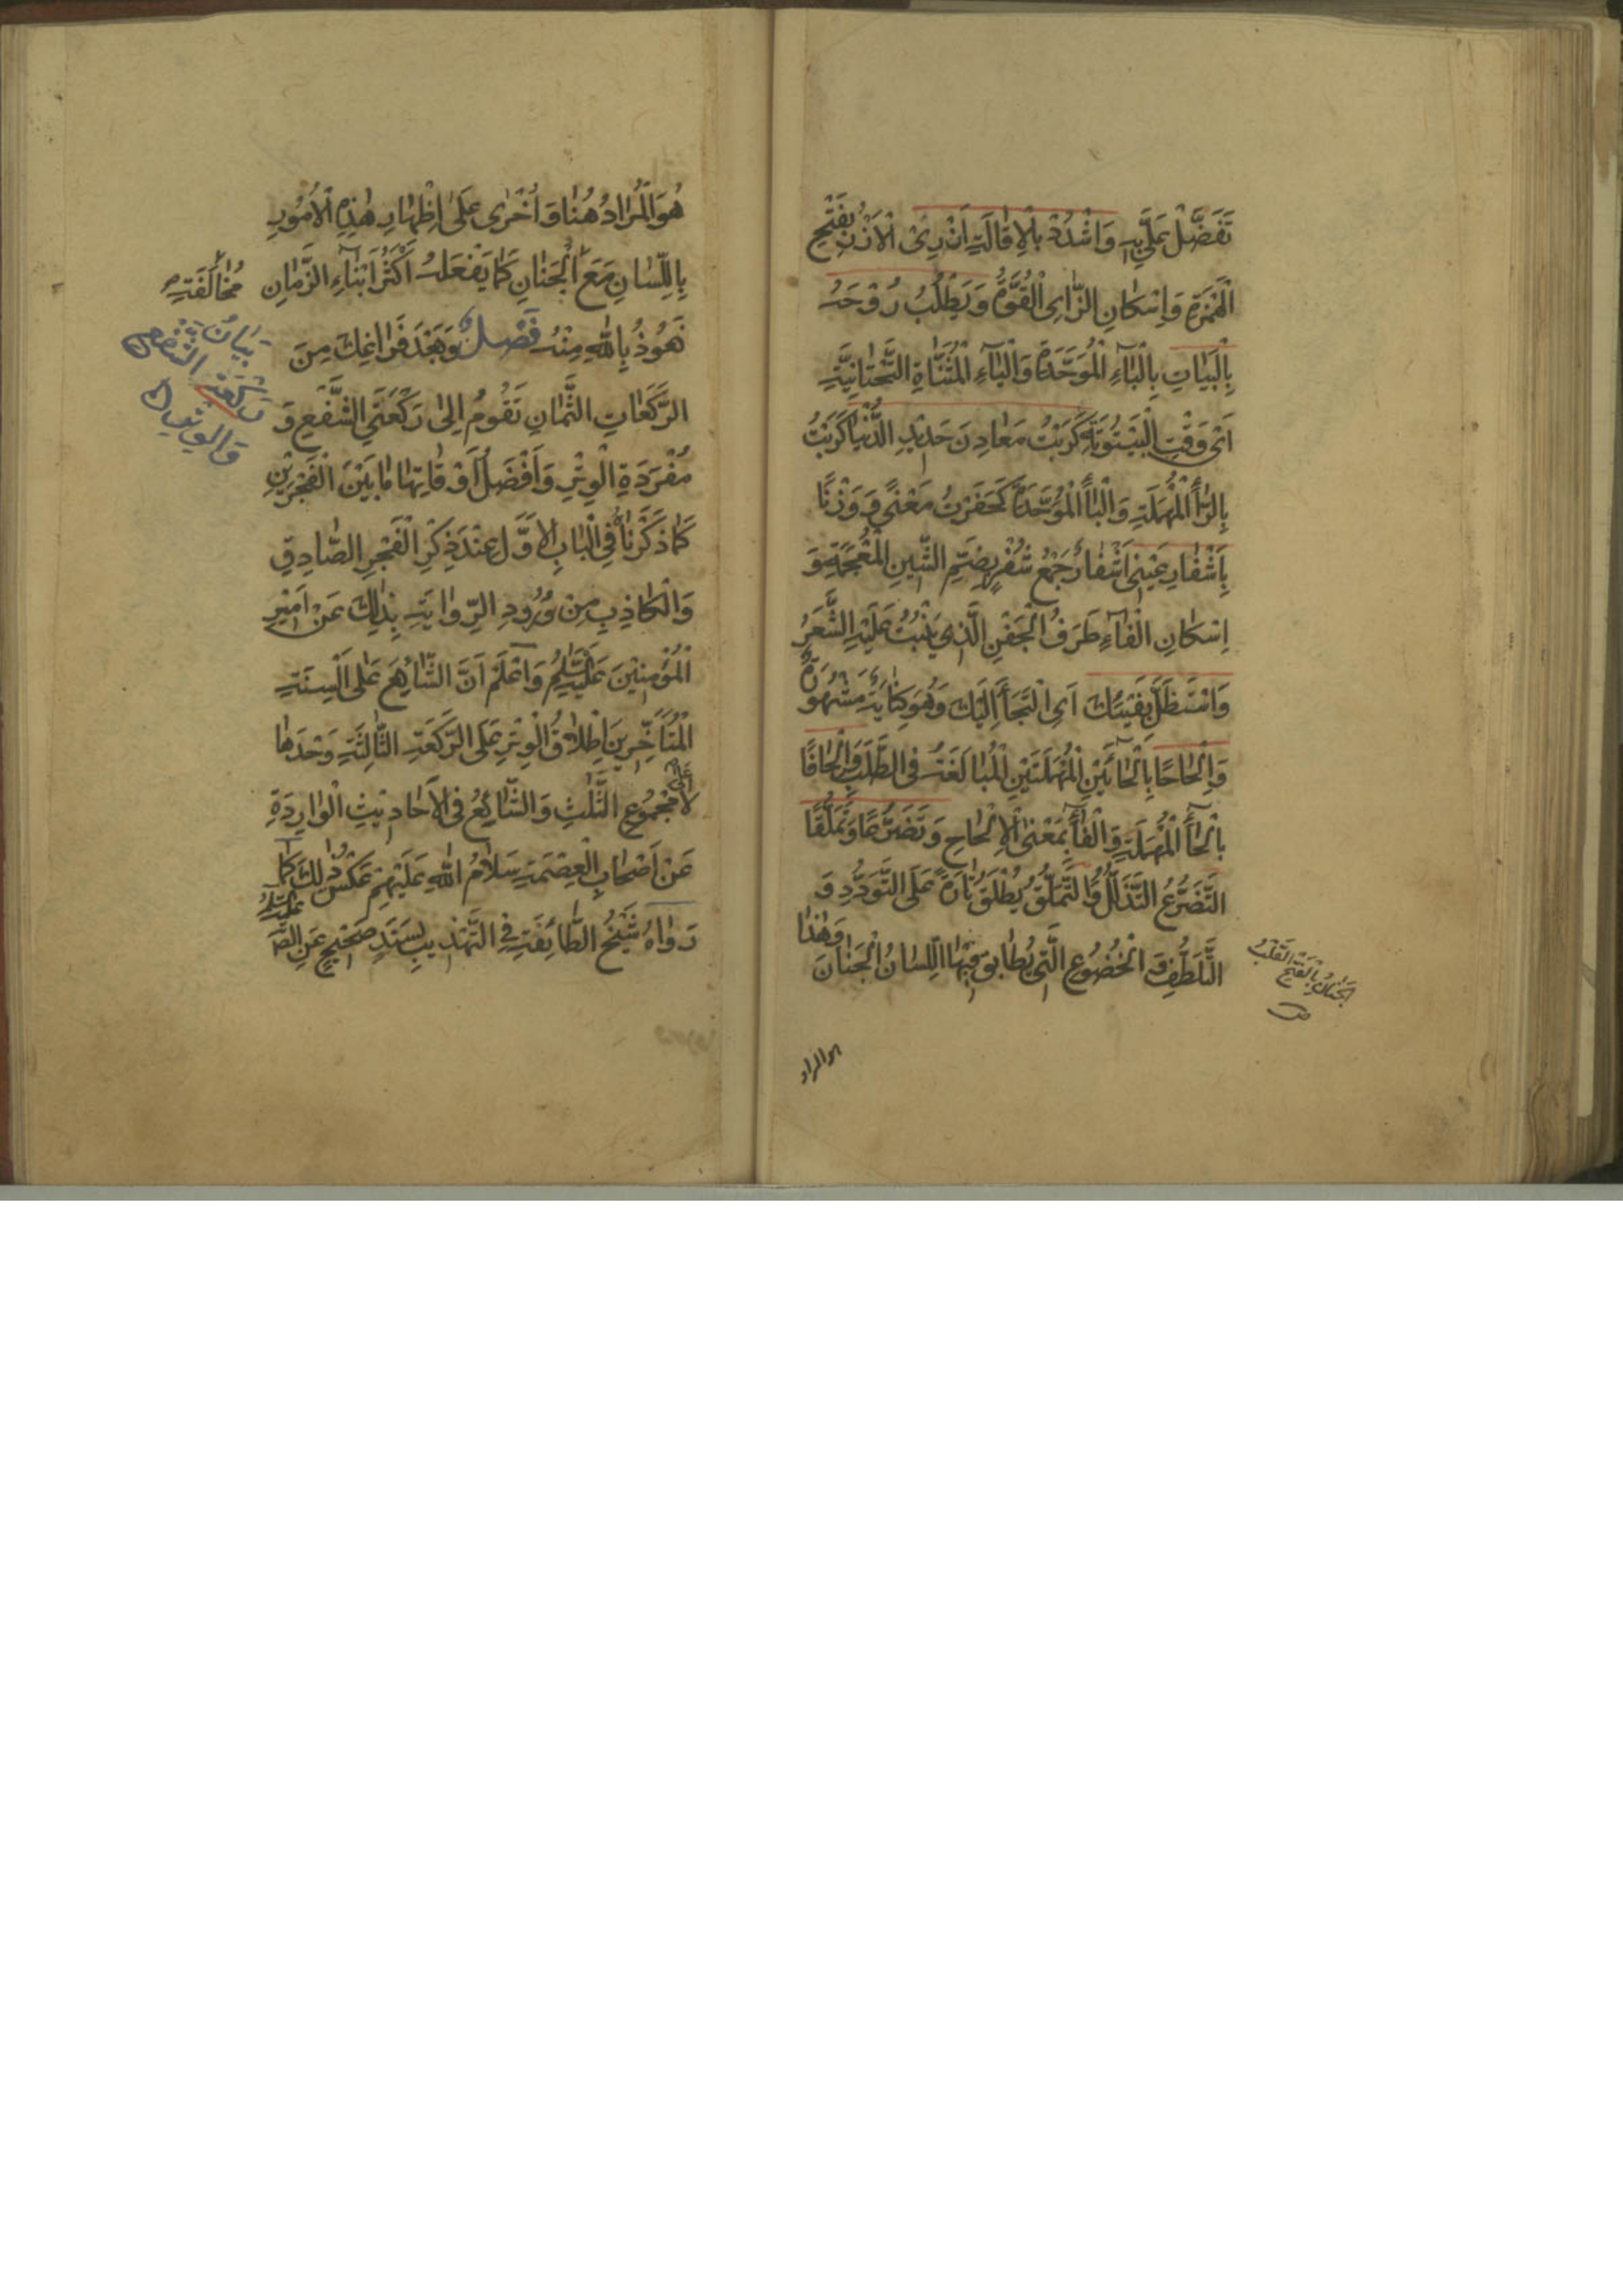 تَفَضَّلْ عَلَيَّ بِهِ وَاشْدُدْ بِالْاِقَالَةِ اَزْرِىْ الْاَزْرُ بِفَتْحِ
الْهَمْزَةِ وَاِسْكَانِ الزَّاىِ الْقُوَّةُ وَيَطْلُبُ رُوْحَهُ
بِالْبَيَاتِ بِالْبَاءِ الْمُوَحَّدَةِ وَالْيَاءِ الْمُثَنَّاةِ التَّحْتَانِيَّةِ
اَىْ وَقْتِ الْبَيْتُوتَةِ كَرَبْتُ مَعَادِنَ حَدِيْدِ الدُّنْيَا كَرَبْتُ
بِالرَّاءِ الْمُهْمَلَةِ وَالْبَاءِ الْمُوَحَّدَةِ كَحَفَرْتُ مَعْنًى وَ وَزْنًا
بِاَشْفَارِ عَيْنِىْ اَشْفَارُ جَمْعُ شُفْرٍ بِضَمِّ الشِّينِ الْمُعْجَمَةِ وَ
اِسْكَانِ الْفَاءِ طَرَفُ الْجَفْنِ الَّذِي يَنْبُتُ عَلَيْهِ الشَّعَرُ
وَاسْتَظَلَّ بِفَيْئِكَ اَىِ الْتَجَأَ اِلَيْكَ وَهُوَ كِنَايَةٌ مَشْهُورَةٌ
وَاِلْحَاحًا بِالْحَائَيْنِ الْمُهْمَلَتَيْنِ الْمُبَالَغَةُ فِى الطَّلَبِ وَاِلْحَافًا
بِالْحَاءِ الْمُهْمَلَةِ وَالْفَاءِ بِمَعْنَى الْاِلْحَاحِ وَتَضَرُّعًا وَتَمَلُّقًا
التَّضَرُّعُ التَّذَلُّلُ وَالتَّمَلُّقُ يُطْلَقُ تَارَةً عَلَى التَّوَدُّدِ وَ
التَّلَطُّفِ وَ الْخُضُوعِ الَّتِى يُطَابِقُ فِيْهَا اللِّسَانُ الْجَنَانَ وَهٰذَا
الجَنَانُ بِالْفَتْحِ الْقَلْبُ
ص
هو المراد
هُوَ الْمُرَادُ هُنَا وَ اُخْرٰى عَلٰى اِظْهَارِ هٰذِهِ الْاُمُوْرِ
بِاللِّسَانِ مَعَ الْجَنَانِ كَمَا يَفْعَلُهُ اَكْثَرُ اَبْنَاءِ الزَّمَانِ
مُخَالَفَتِهِ
نَعُوْذُ بِاللّٰهِ مِنْهُ فَصْلٌ وَبَعْدَ فَرَاغِكَ مِنَ
بَيَانُ
الشفع
والوتر
الرَّكَعَاتِ الثَّمَانِ تَقُوْمُ اِلٰى رَكْعَتَيِ الشَّفْعِ وَ
مُفْرَدَةِ الْوِتْرِ وَاَفْضَلُ اَوْقَاتِهَا مَا بَيْنَ الْفَجْرَيْنِ
كَمَا ذَكَرْنَاهُ فِى الْبَابِ الْاَوَّلِ عِنْدَ ذِكْرِ الْفَجْرِ الصَّادِقِ
وَالْكَاذِبِ مِنْ وُرُودِ الرِّوَايَةِ بِذٰلِكَ عَنْ اَمِيْرِ
الْمُؤْمِنِيْنَ عَلَيْهِ السَّلَامُ وَاعْلَمْ اَنَّ الشَّايِعَ عَلٰى اَلْسِنَةِ
الْمُتَأَخِّرِينَ اِطْلَاقُ الْوِتْرِ عَلَى الرَّكْعَةِ الثَّالِثَةِ وَحْدَهَا
لَا عَلٰى مَجْمُوعِ الثَّلٰثِ وَالشَّايِعُ فِى الْاَحَادِيْثِ الْوَارِدَةِ
عَنْ اَصْحَابِ الْعِصْمَةِ سَلَامُ اللّٰهِ عَلَيْهِمْ عَكْسُ ذٰلِكَ كَمَا
رَوَاهُ شَيْخُ الطَّائِفَةِ فِى التَّهْذِيبِ بِسَنَدٍ صَحِيْحٍ عَنِ الصَّا عَلَيْهِ السَّلَامُ